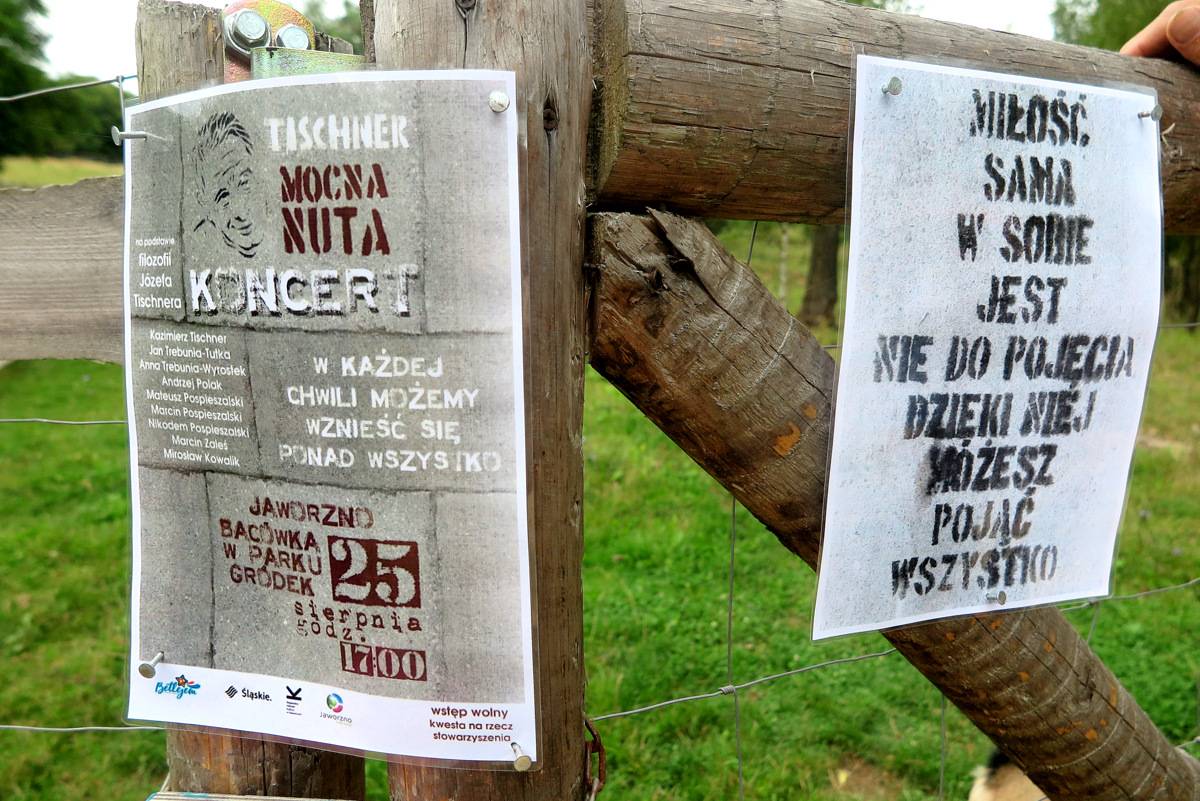 TISCHNER
MOCNA
NUTA
na podstawie
filozofii
Józefa
Tischnera
KONCERT
Kazimierz Tischner
Jan Trebunia-Tutka
Anna Trebunia-Wyrostek
Andrzej Polak
Mateusz Pospieszalski
Marcin Pospieszalski
Nikodem Pospieszalski
Marcin Żaleś
Mirosław Kowalik
W KAŻDEJ
CHWILI MOŻEMY
WZNIEŚĆ SIĘ
PONAD WSZYSTKO
JAWORZNO
BACÓWKA
W PARKU
GRÓDEK
25
sierpnia
godz.
17:00
Betlejem
Śląskie.
Jaworzno
wstęp wolny
kwesta na rzecz
stowarzyszenia
MIŁOŚĆ
SAMA
W SOBIE
JEST
NIE DO POJĘCIA
DZIĘKI NIEJ
MÓŻESZ
POJĄĆ
WSZYSTKO